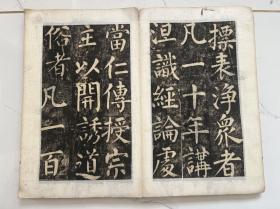 摽表淨衆者
凡一十年講
涅識經論處
當仁傳授宗
主以開誘道
俗者凡一百